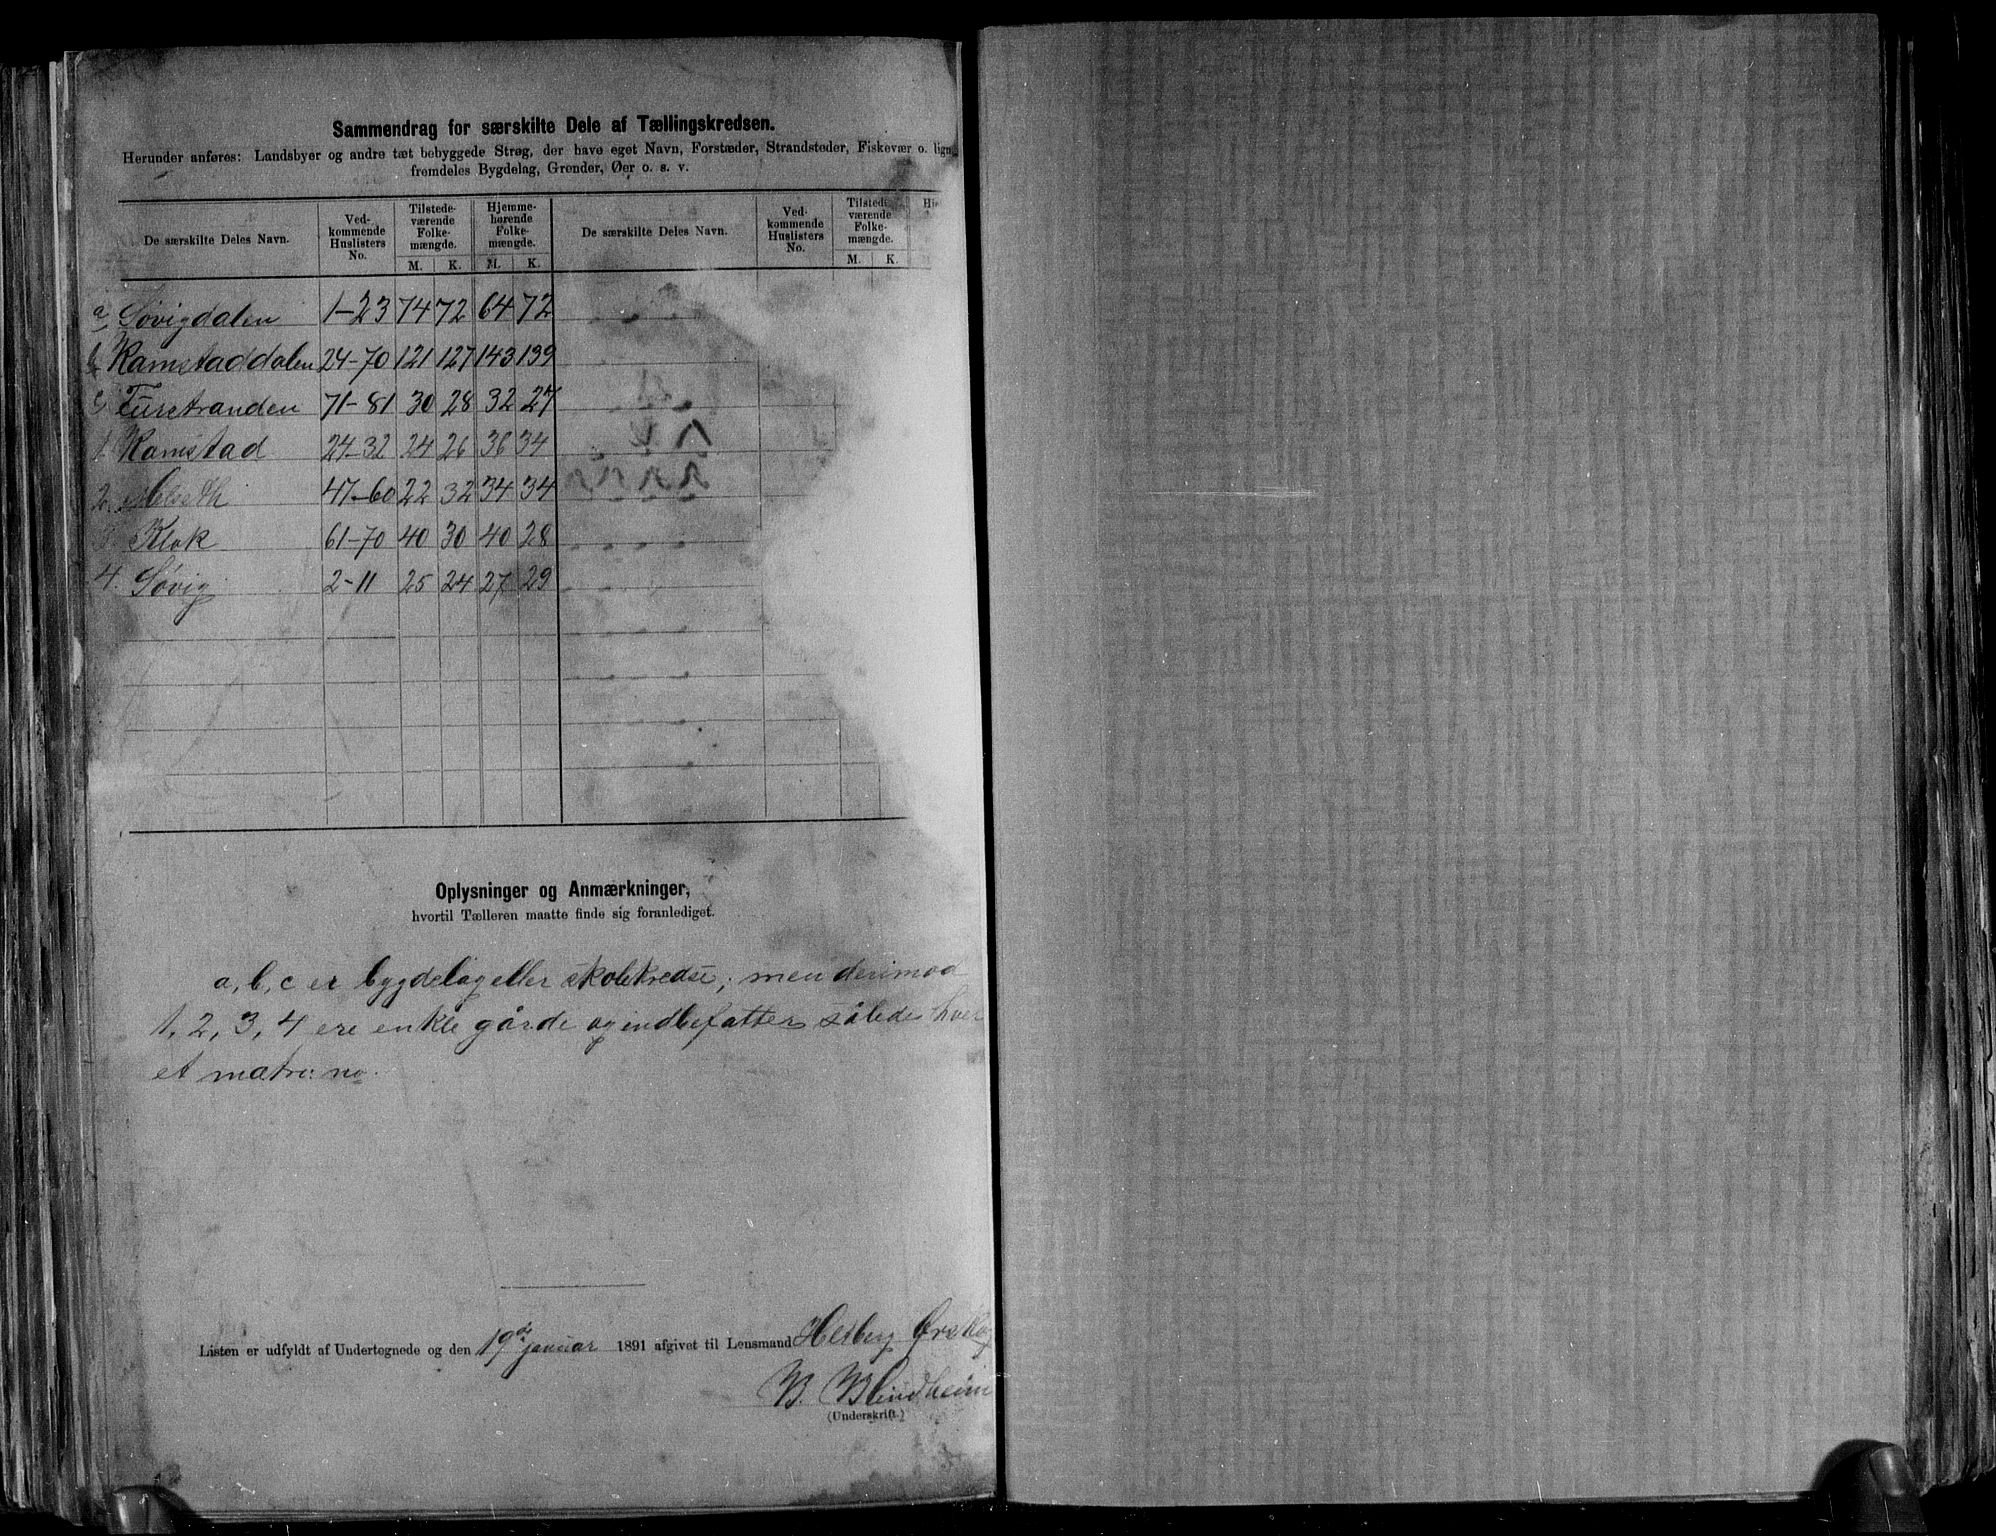 Sammendrag for særskilte Dele af Tællingskredsen.
Herunder anføres: Landsbyer og andre tæt bebyggede Strøg, der have eget Navn, Forstæder, Strandsteder, Fiskevær o. lign.
fremdeles Bygdelag, Grender, Øer o. s. v.
De særskilte Deles Navn. Ved-kommende Huslisters No. Tilstede-værende Folke-mængde. Hjemme-hørende Folke-mængde. De særskilte Deles Navn. Ved-kommende Huslisters No. Tilstede-værende Folke-mængde.
M. K. M. K. M. K.
a, Søvigdalen 1-23 74 72 64 72
b, Ramstaddalen 24-70 121 127 143 139
c, Turstranden 71-81 30 28 32 27
1. Ramstad 24-32 24 26 36 34
2. Melseth 47-60 22 32 34 34
3. Klok 61-70 40 30 40 28
4. Søvig 2-11 25 24 27 29
Oplysninger og Anmærkninger,
hvortil Tælleren maatte finde sig foranlediget.
a, b, c er bygdelag eller skolekredse; men derimod
1, 2, 3, 4 ere enkle gårde og indbefatter således hver
et matr: no.
Listen er udfyldt af Undertegnede og den 19de januar 1891 afgivet til Lensmand Hesberg Ørskog
B. Blindheim
(Underskrift.)